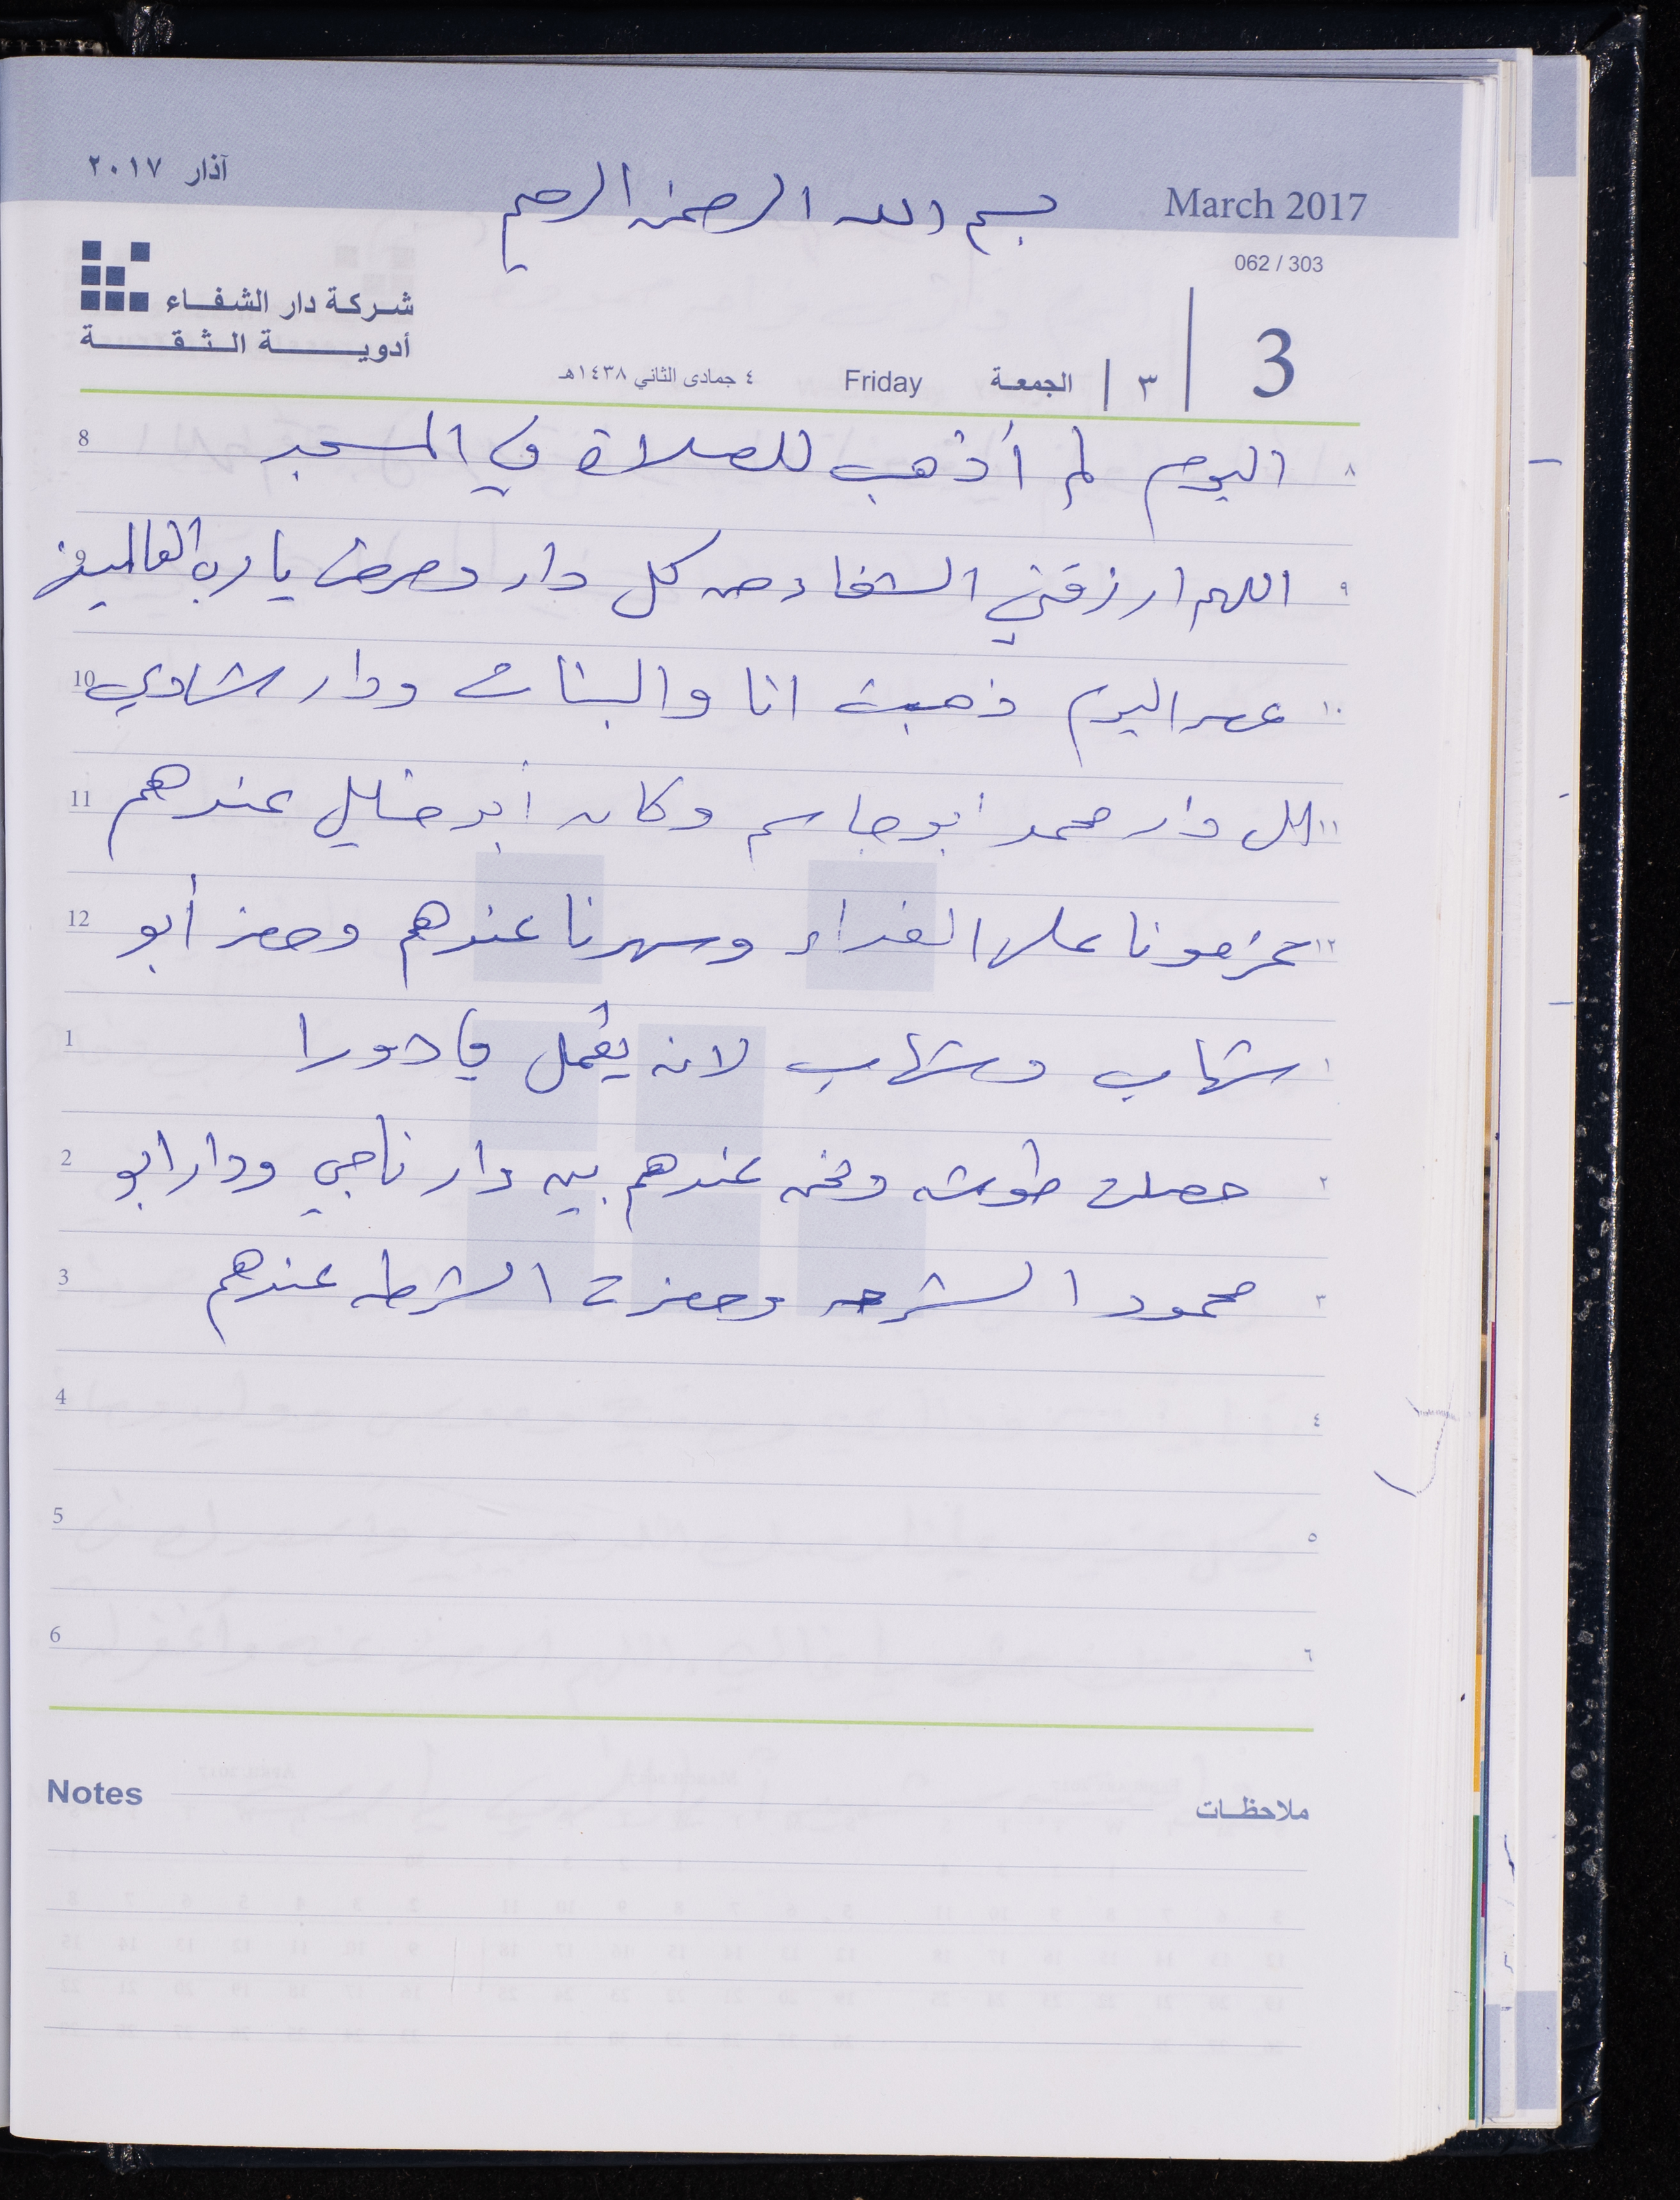 آذار ٢٠١٧
بسم الله الرحمن الرحيم
March 2017
062 / 303
شركة دار الشفاء
أدوية الثقة
3 ٣ الجمعة Friday ٤ جمادى الثاني ١٤٣٨هـ
8 اليوم لم أذهب للصلاة في المسجد ٨
9 اللهم ارزقني الشفاء من كل داء ومرض يا رب العالمين ٩
10 عصر اليوم ذهبت انا والبنات ودار شادي ١٠
11 الى دار محمد ابو جاسم وكان أبو خليل عندهم ١١
12 عزمونا على الغداء وسهرنا عندهم وحضر أبو ١٢
1 شهاب وشهاب لانه يعمل في دورا ١
2 حصلت طوشه ونحن عندهم بين دار ناجي ودار ابو ٢
3 محمود الشرحه وحضرت الشرطه عندهم ٣
4 ٤
5 ٥
6 ٦
Notes ملاحظات